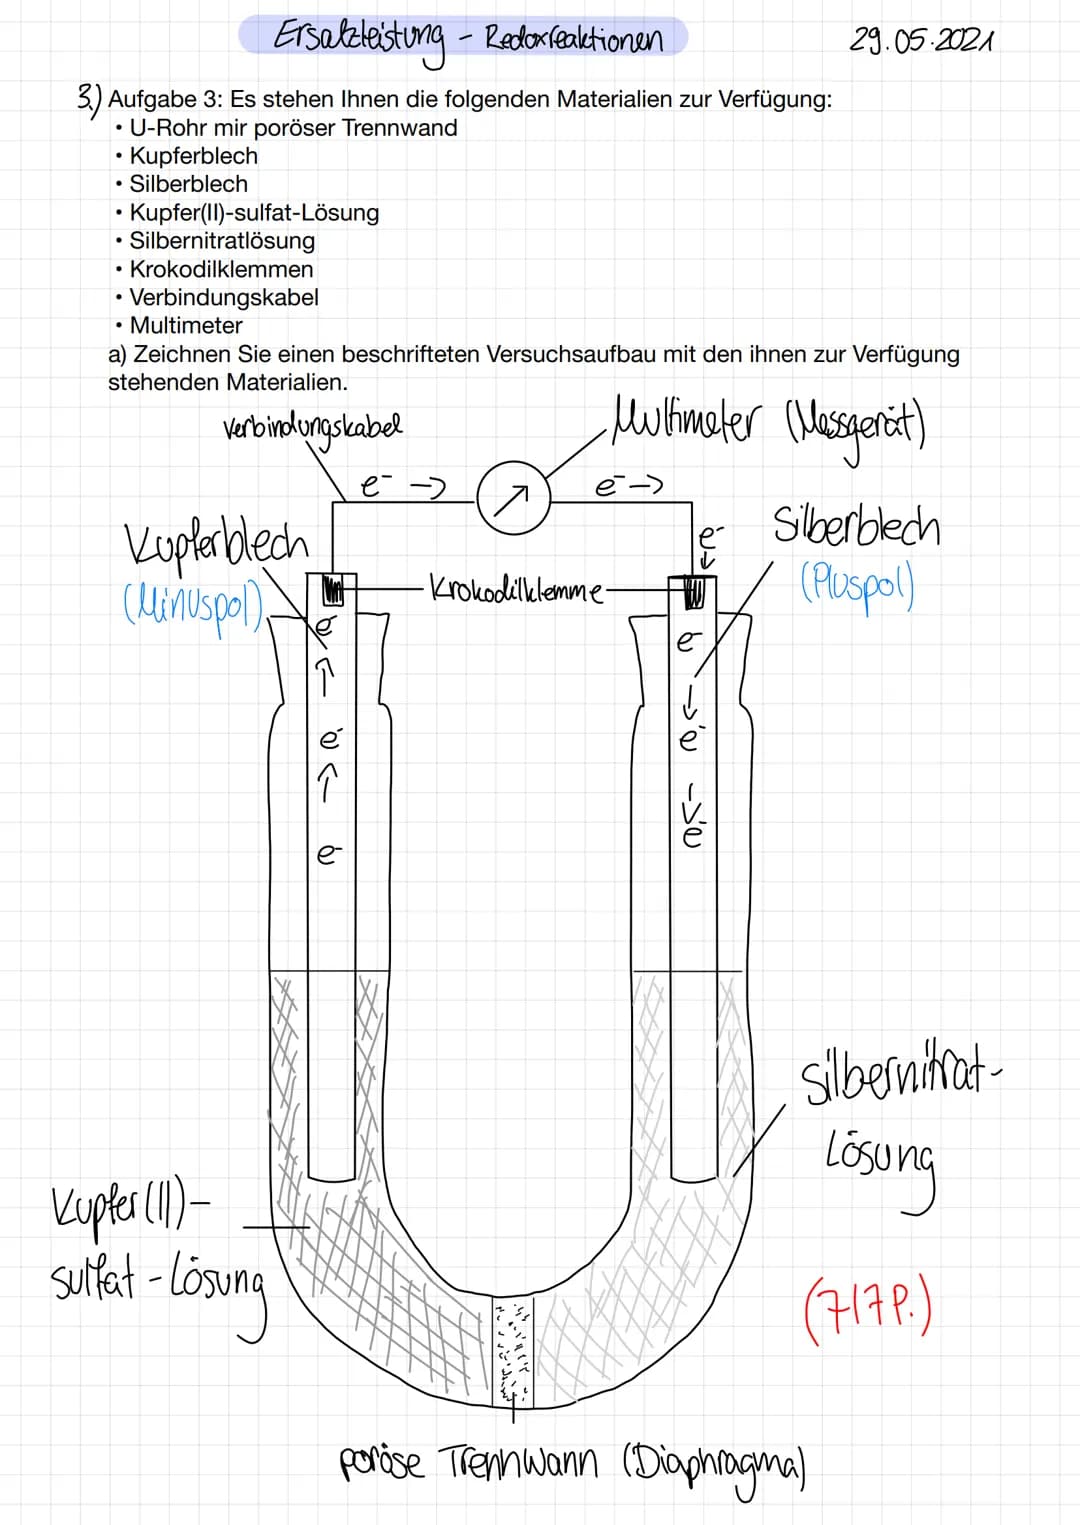 Ersatzleistung - Redoxreaktionen
29.05.2021
3.) Aufgabe 3: Es stehen Ihnen die folgenden Materialien zur Verfügung:
• U-Rohr mir poröser Trennwand
• Kupferblech
• Silberblech
• Kupfer(II)-sulfat-Lösung
• Silbernitratlösung
• Krokodilklemmen
• Verbindungskabel
• Multimeter
a) Zeichnen Sie einen beschrifteten Versuchsaufbau mit den ihnen zur Verfügung
stehenden Materialien.
Verbindungskabel
Multimeter (Messgerät)
e⁻ →
e⁻ →
Kupferblech
(Minuspol)
e⁻
Silberblech
(Pluspol)
Krokodilklemme
e⁻
e⁻
e⁻
e⁻
e⁻
e⁻
Silbernitrat-
Lösung
Kupfer(II)-
sulfat-Lösung
(7/7P.)
poröse Trennwann (Diaphragma)